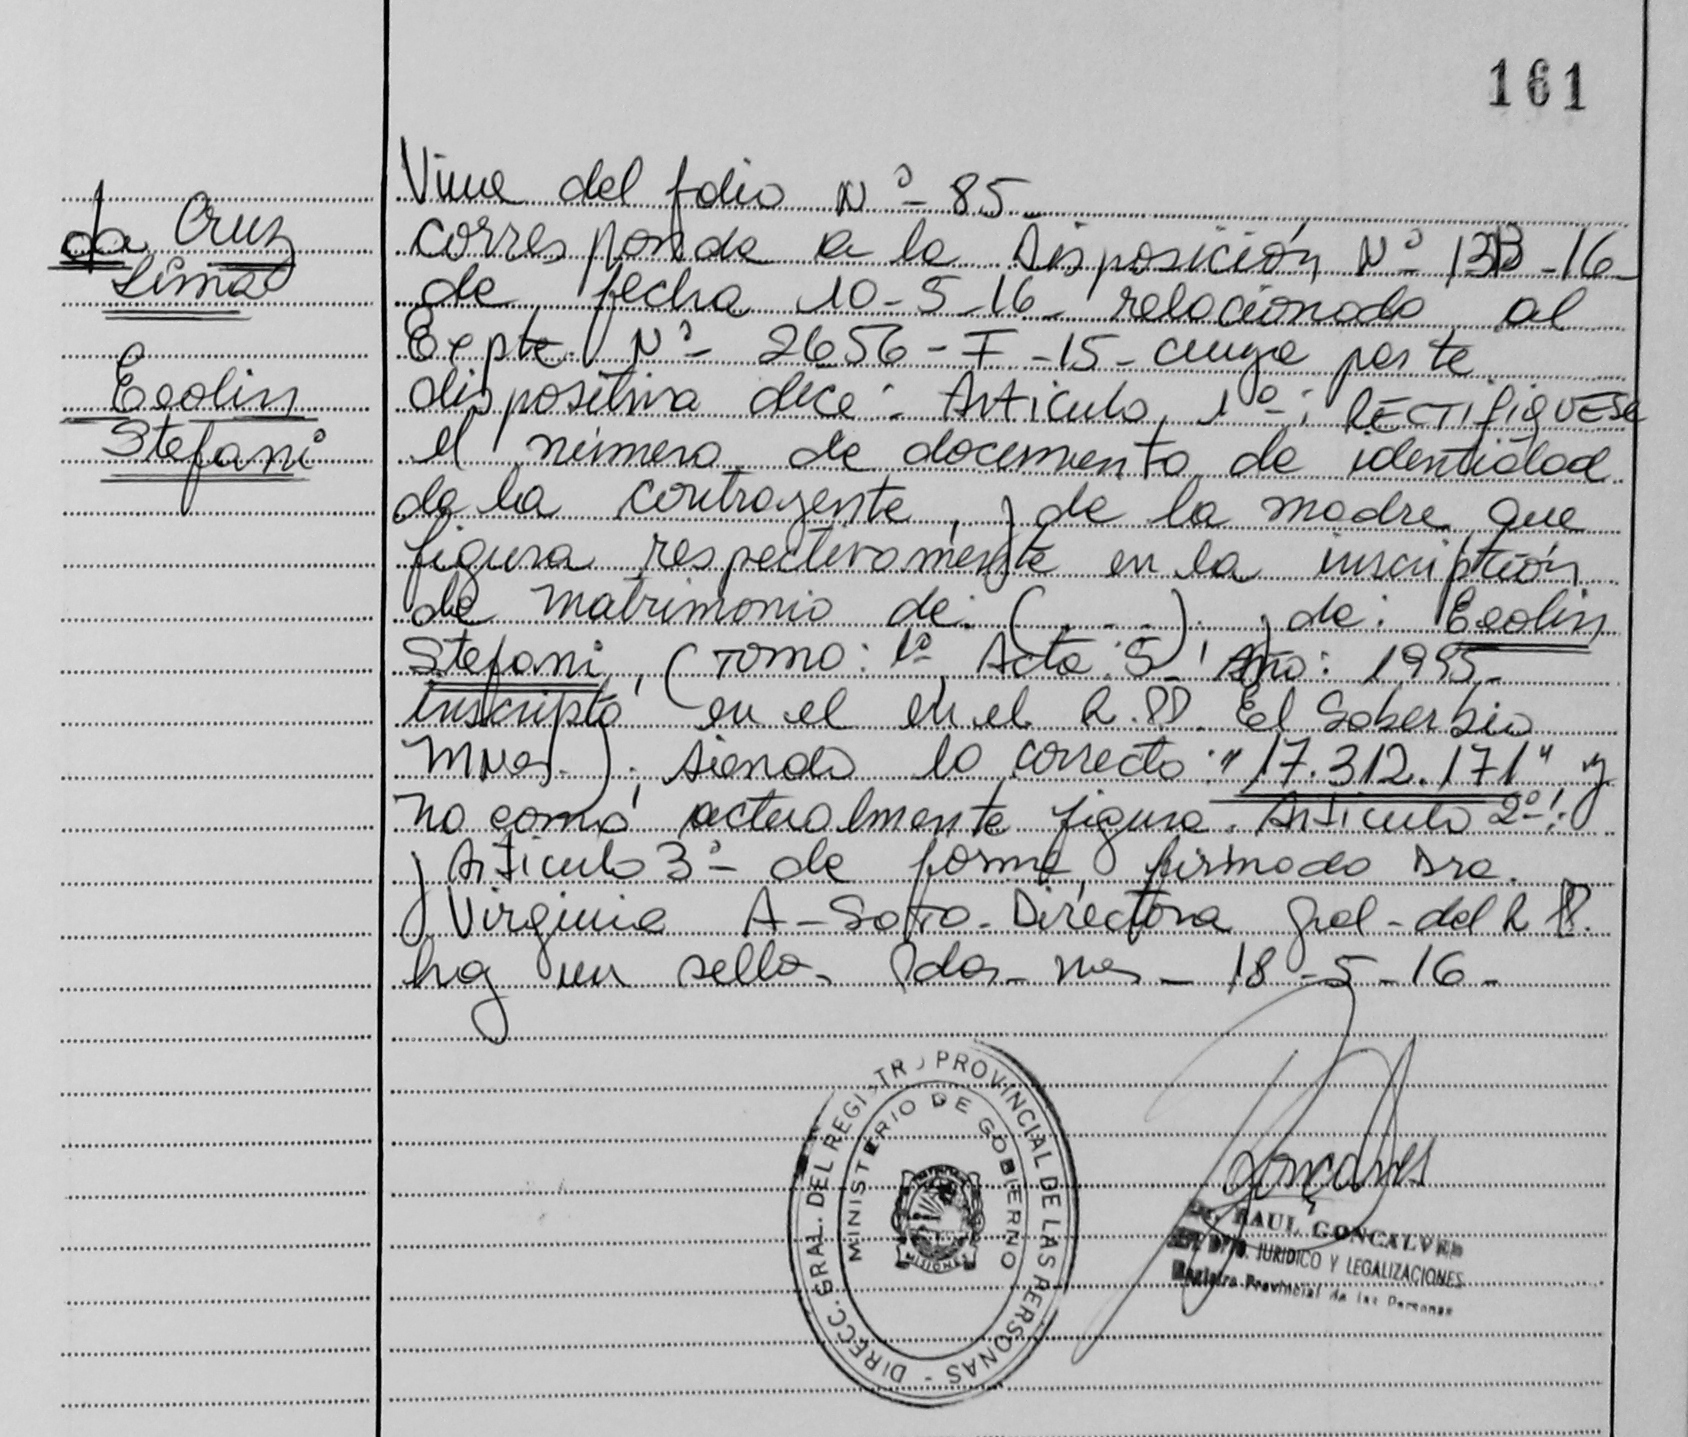 161
da Cruz
Lima
Eeolin
Stefani
Viene del folio Nº 85-
corresponde a la Disposición Nº 13-16-
de fecha 10-5-16- relacionado al
Expte. Nº 2656-F-15- cuya parte
dispositiva dice: Articulo 1º: RECTIFIQUESE
el número de documento de identidad
de la contrayente, y de la madre que
figura respectivamente en la inscripción
de matrimonio de: (....). y de: Eeolin
Stefani, (Tomo: 1º, Acta: 5, Año: 1995-
inscripta en el en el R.PP El Soberbio
Mnes.); siendo lo correcto: "17.312.171" y
no como actualmente figura. Articulo 2º:
y Articulo 3º de forma, firmado Dra.
Virginia A-Soto-Directora Gral-del R.P.
hay un sello- Pdas-mes- 18-5-16-
DIRECC. GRAL. DEL REGISTRO PROVINCIAL DE LAS PERSONAS -
MINISTERIO DE GOBIERNO
MISIONES
Goncalves
RAUL GONCALVES
DPTO. JURIDICO Y LEGALIZACIONES
Registro Provincial de las Personas